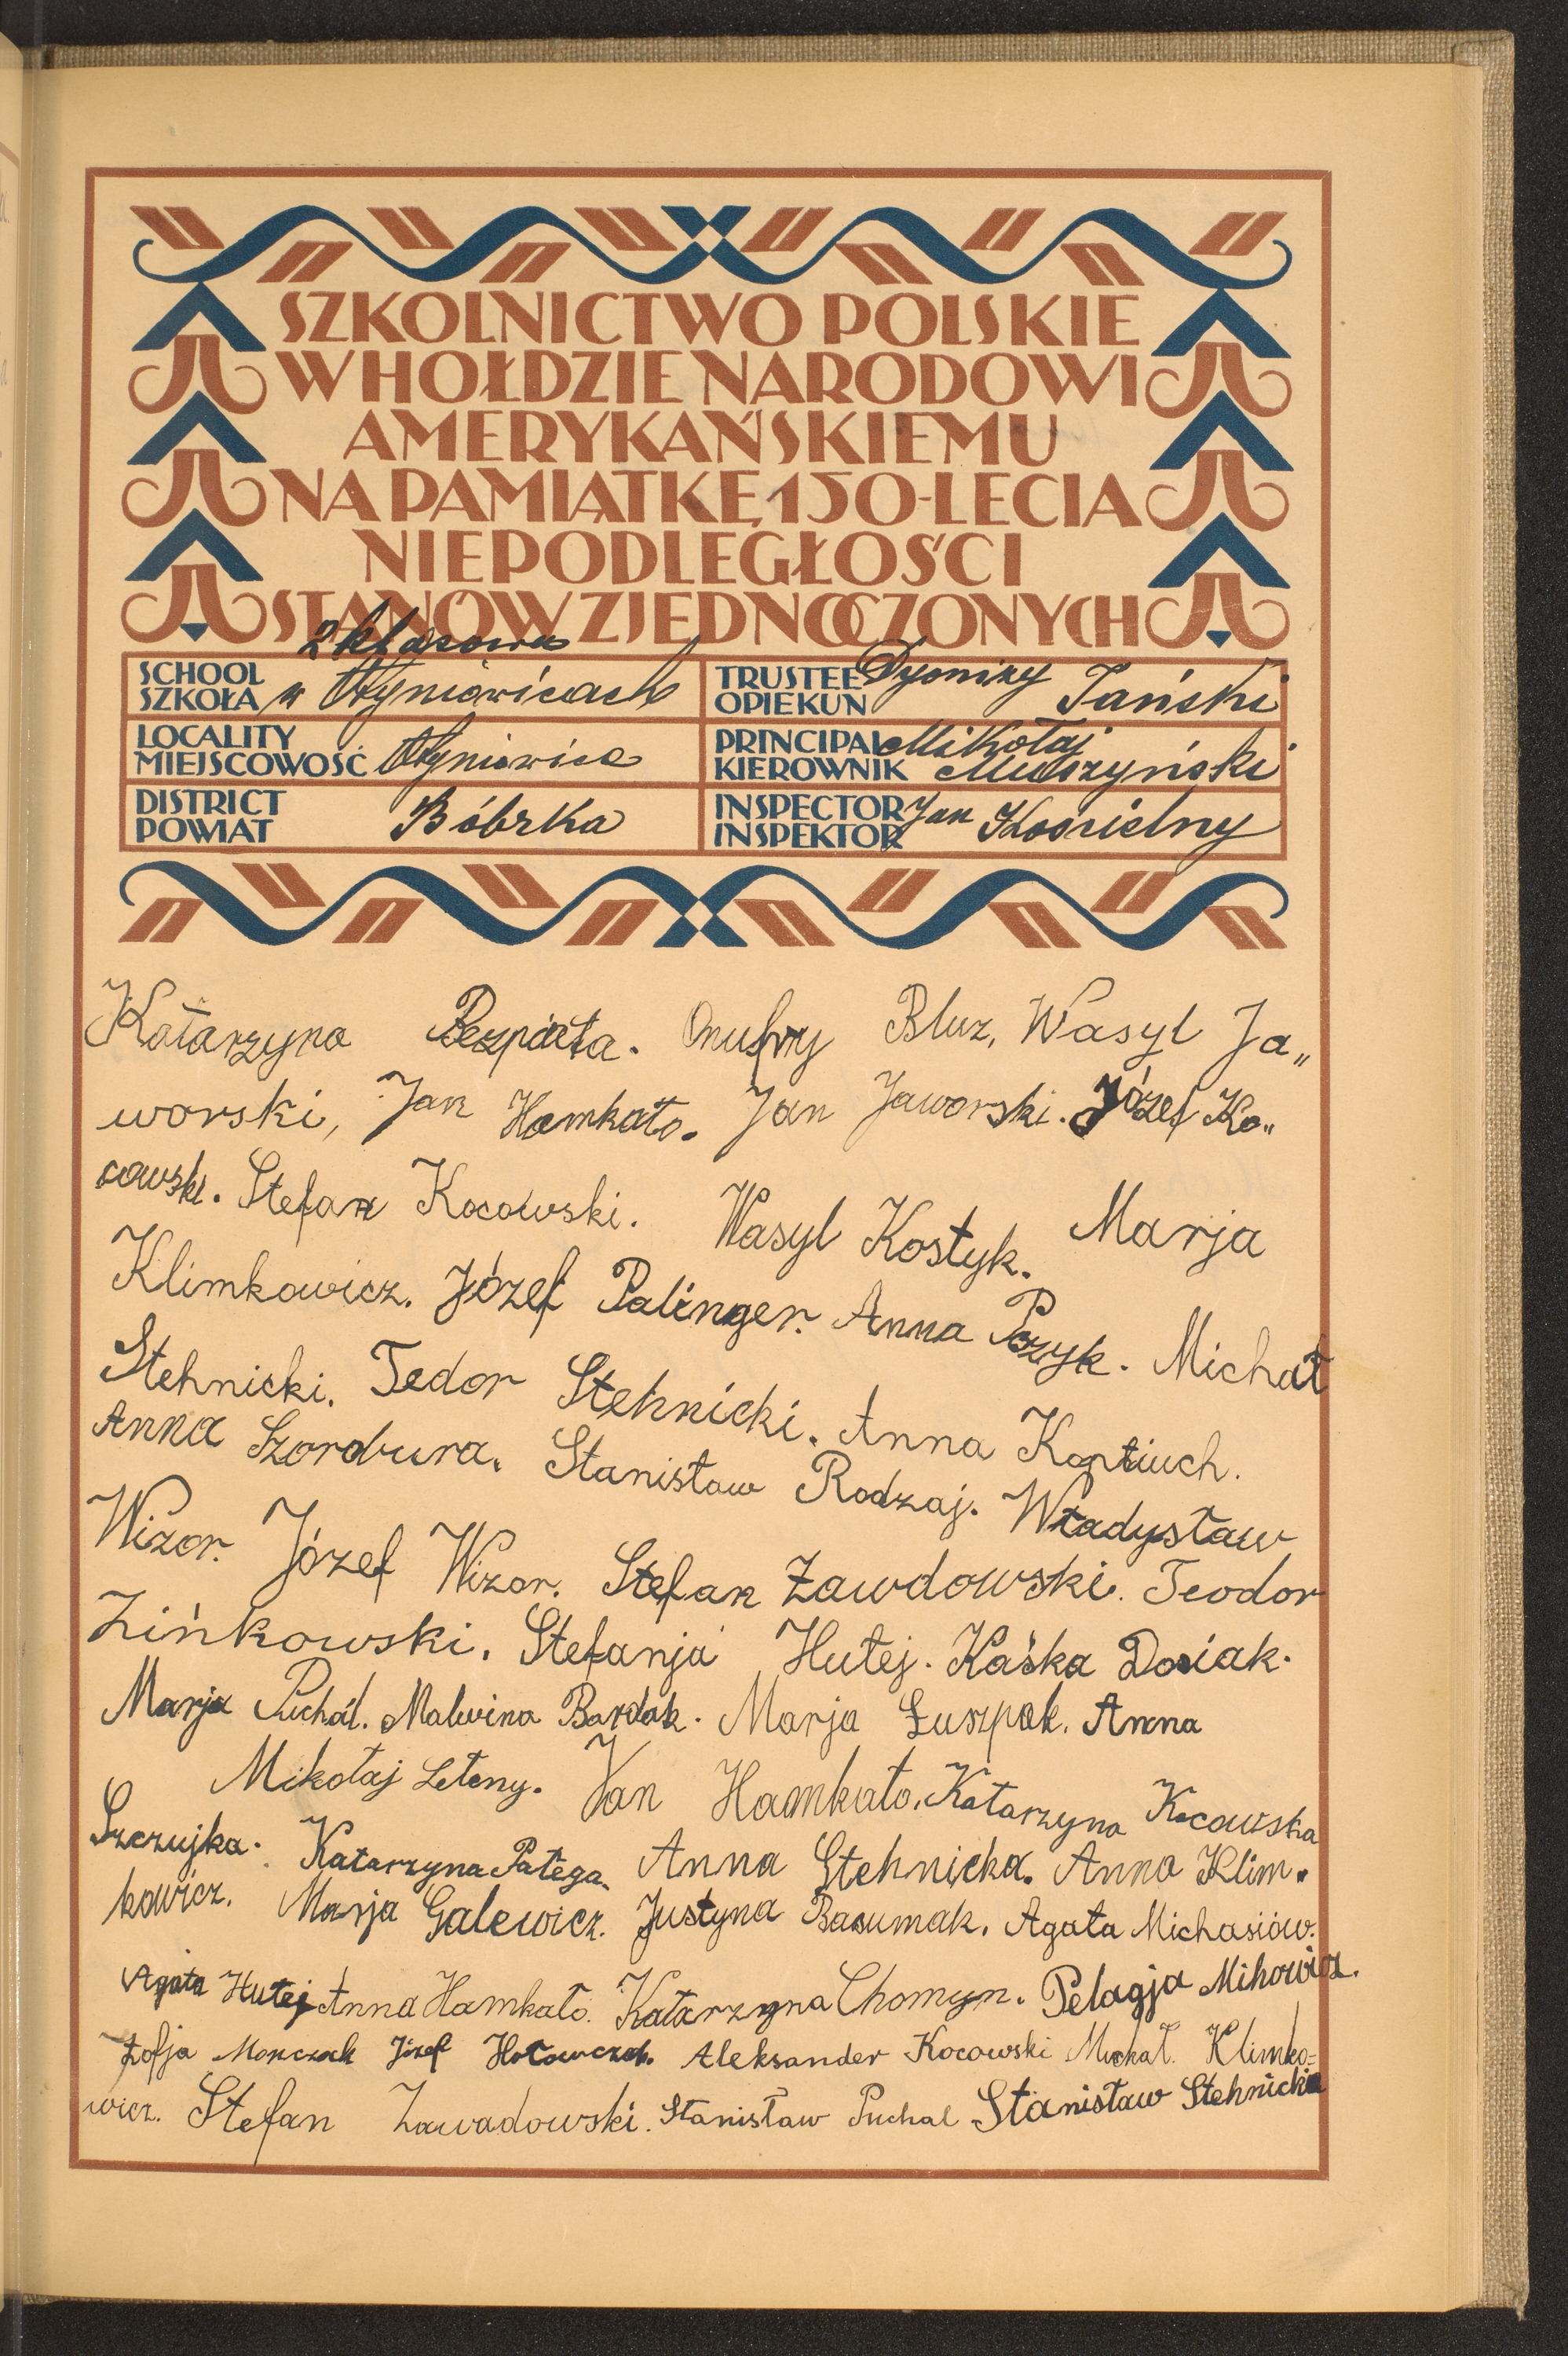 SZKOLNICTWO POLSKIE
W HOŁDZIE NARODOWI
AMERYKAŃSKIEMU
NA PAMIĄTKĘ 150-LECIA
NIEPODLEGŁOŚCI
STANÓW ZJEDNOCZONYCH
2 klasowa
SCHOOL
SZKOŁA w
TRUSTEE Dyonizy
OPIEKUN Tański
LOCALITY
MIEJSCOWOŚĆ
PRINCIPAL Mikołaj
KIEROWNIK Muszyński
DISTRICT
POWIAT Bóbrka
INSPECTOR Jan
INSPEKTOR Kościelny
Katarzyna Bezpiata. Onufry Bluz, Wasyl Ja„
worski, Jan Hamkało. Jan Jaworski. Józef Ko„
cowski. Stefan Kocowski. Wasyl Kostyk. Marja
Klimkowicz. Józef Palinger. Anna Pozyk. Michał
Stehnicki. Tedor Stehnicki. Anna Koptiuch.
Anna Szordura. Stanisław Rodzaj. Władysław
Wizor. Józef Wizor. Stefan Zawdowski. Teodor
Zińkowski. Stefanja Hutej. Kaśka Dosiak.
Marja Puchál. Malwina Bardak. Marja Łuszpak. Anna
Mikołaj Leteny. Jan Hamkało. Katarzyna Kocowska
Szczujka. Katarzyna Patega. Anna Stehnicka. Anna Klim.
kowicz. Marja Galewicz. Justyna Basumak. Agata Michasiów.
Agata Hutej Anna Hamkało. Katarzyna Chomyn. Pelagja Mihowicz.
Zofja Monczak Józef Aleksander Kocowski Michał. Klimko=
wicz. Stefan Zawadowski. Stanisław Puchal Stanisław Stehnicki